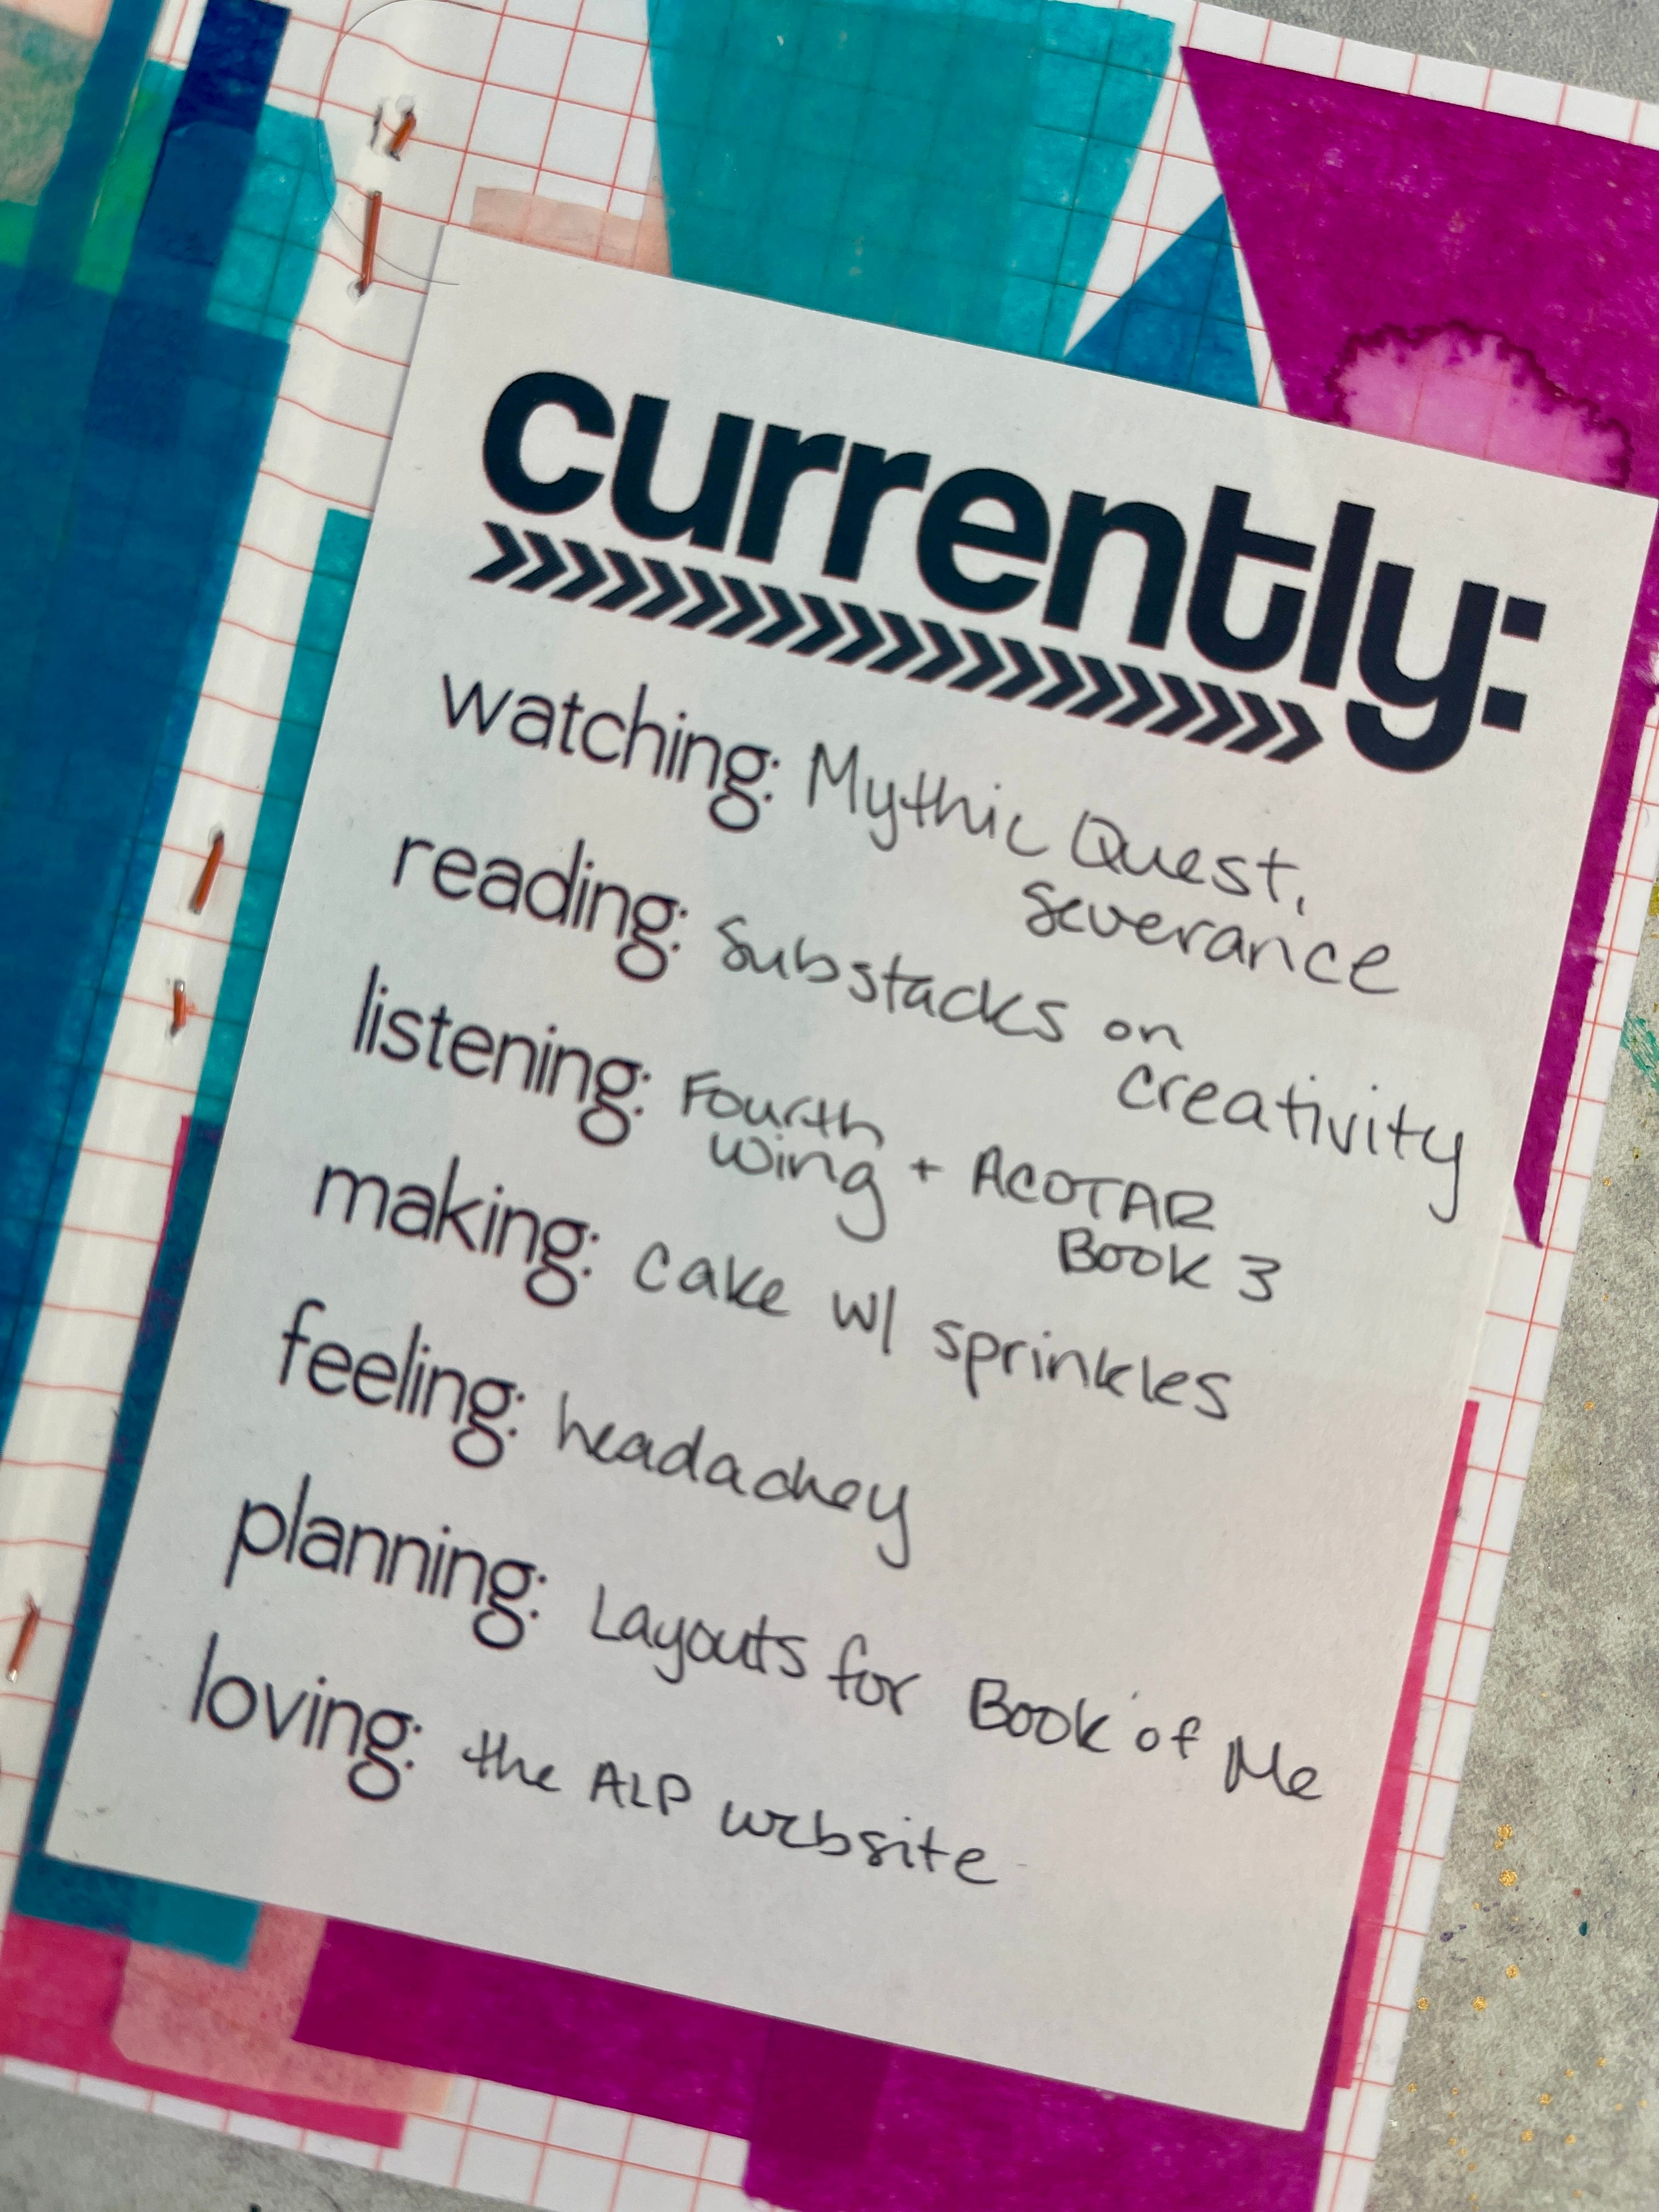 currently:
watching: Mythic Quest,
Severance
reading: Substacks on
creativity
listening: Fourth
Wing + ACOTAR
Book 3
making: cake w/ sprinkles
feeling: headachey
planning: Layouts for Book of Me
loving: the ALP website